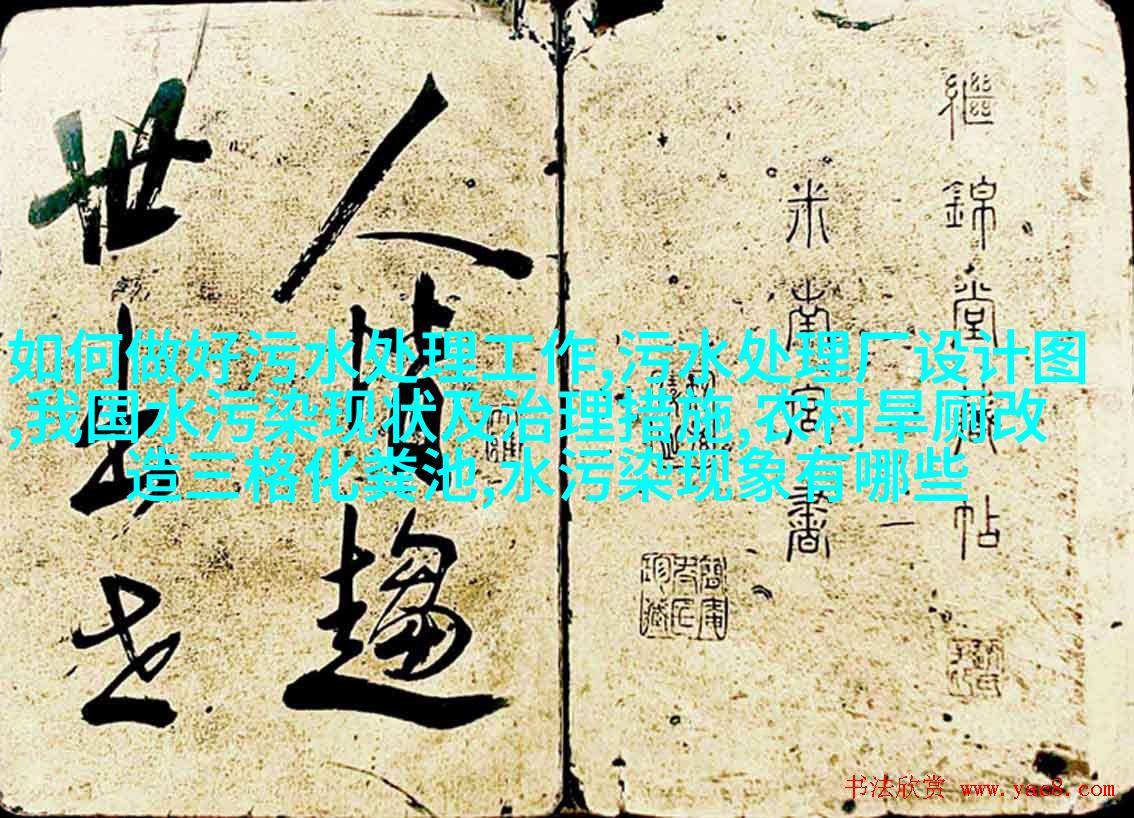 繼錦堂藏帖
米南宮書
人情趨
世出世
如何做好污水处理工作,污水处理厂设计图
,我国水污染现状及治理措施,农村旱厕改
造三格化粪池,水污染现象有哪些
书法欣赏 www.yac8.com